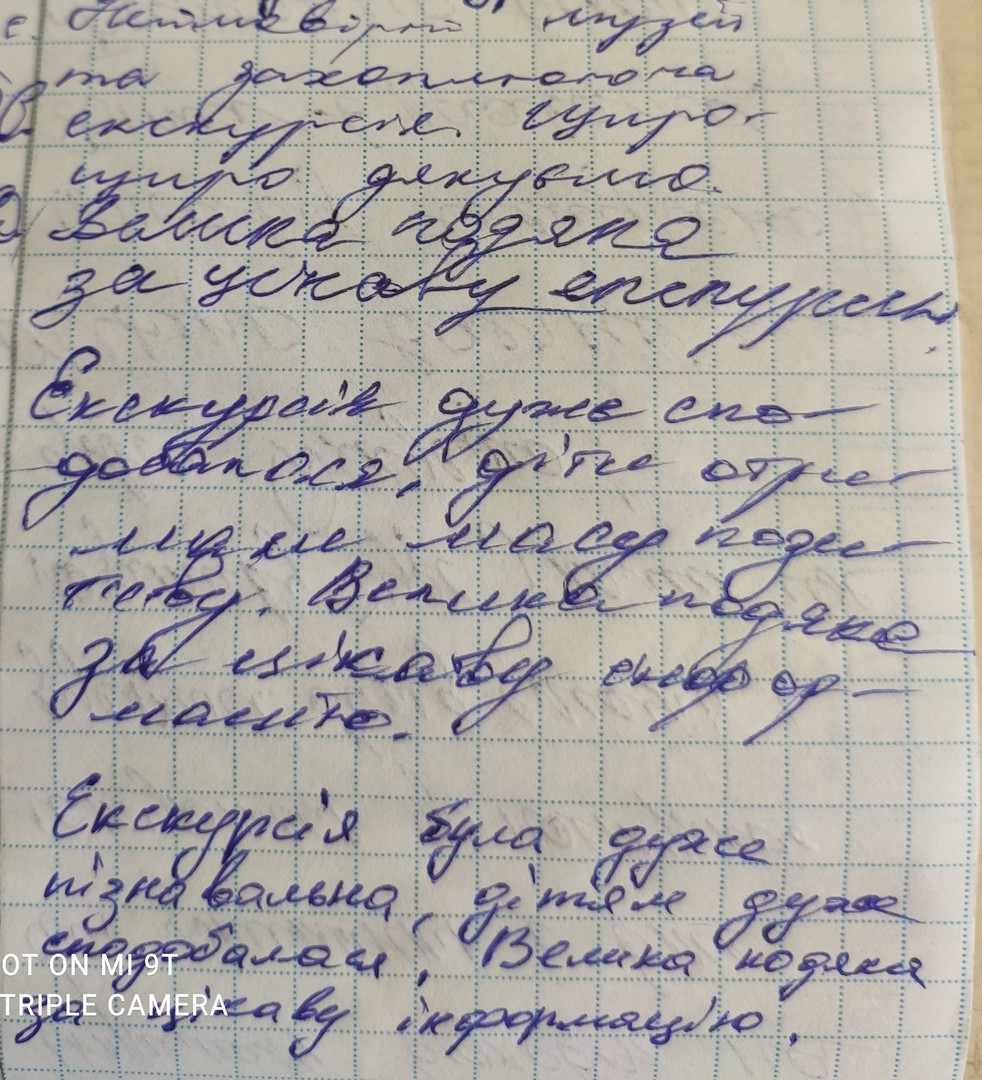 є. Неймовірний музей
та захоплююча
екскурсія. Щиро-
щиро дякуємо.
Велика подяка
за цікаву екскурсію
Екскурсія дуже спо-
добалася, діти отри-
мали масу пози-
тиву. Велика подяка
за цікаву інфор-
мацію.
Екскурсія була дуже
пізнавальна, дітям дуже
сподобалася, Велика подяка
за цікаву інформацію.
SHOT ON MI 9T
AI TRIPLE CAMERA